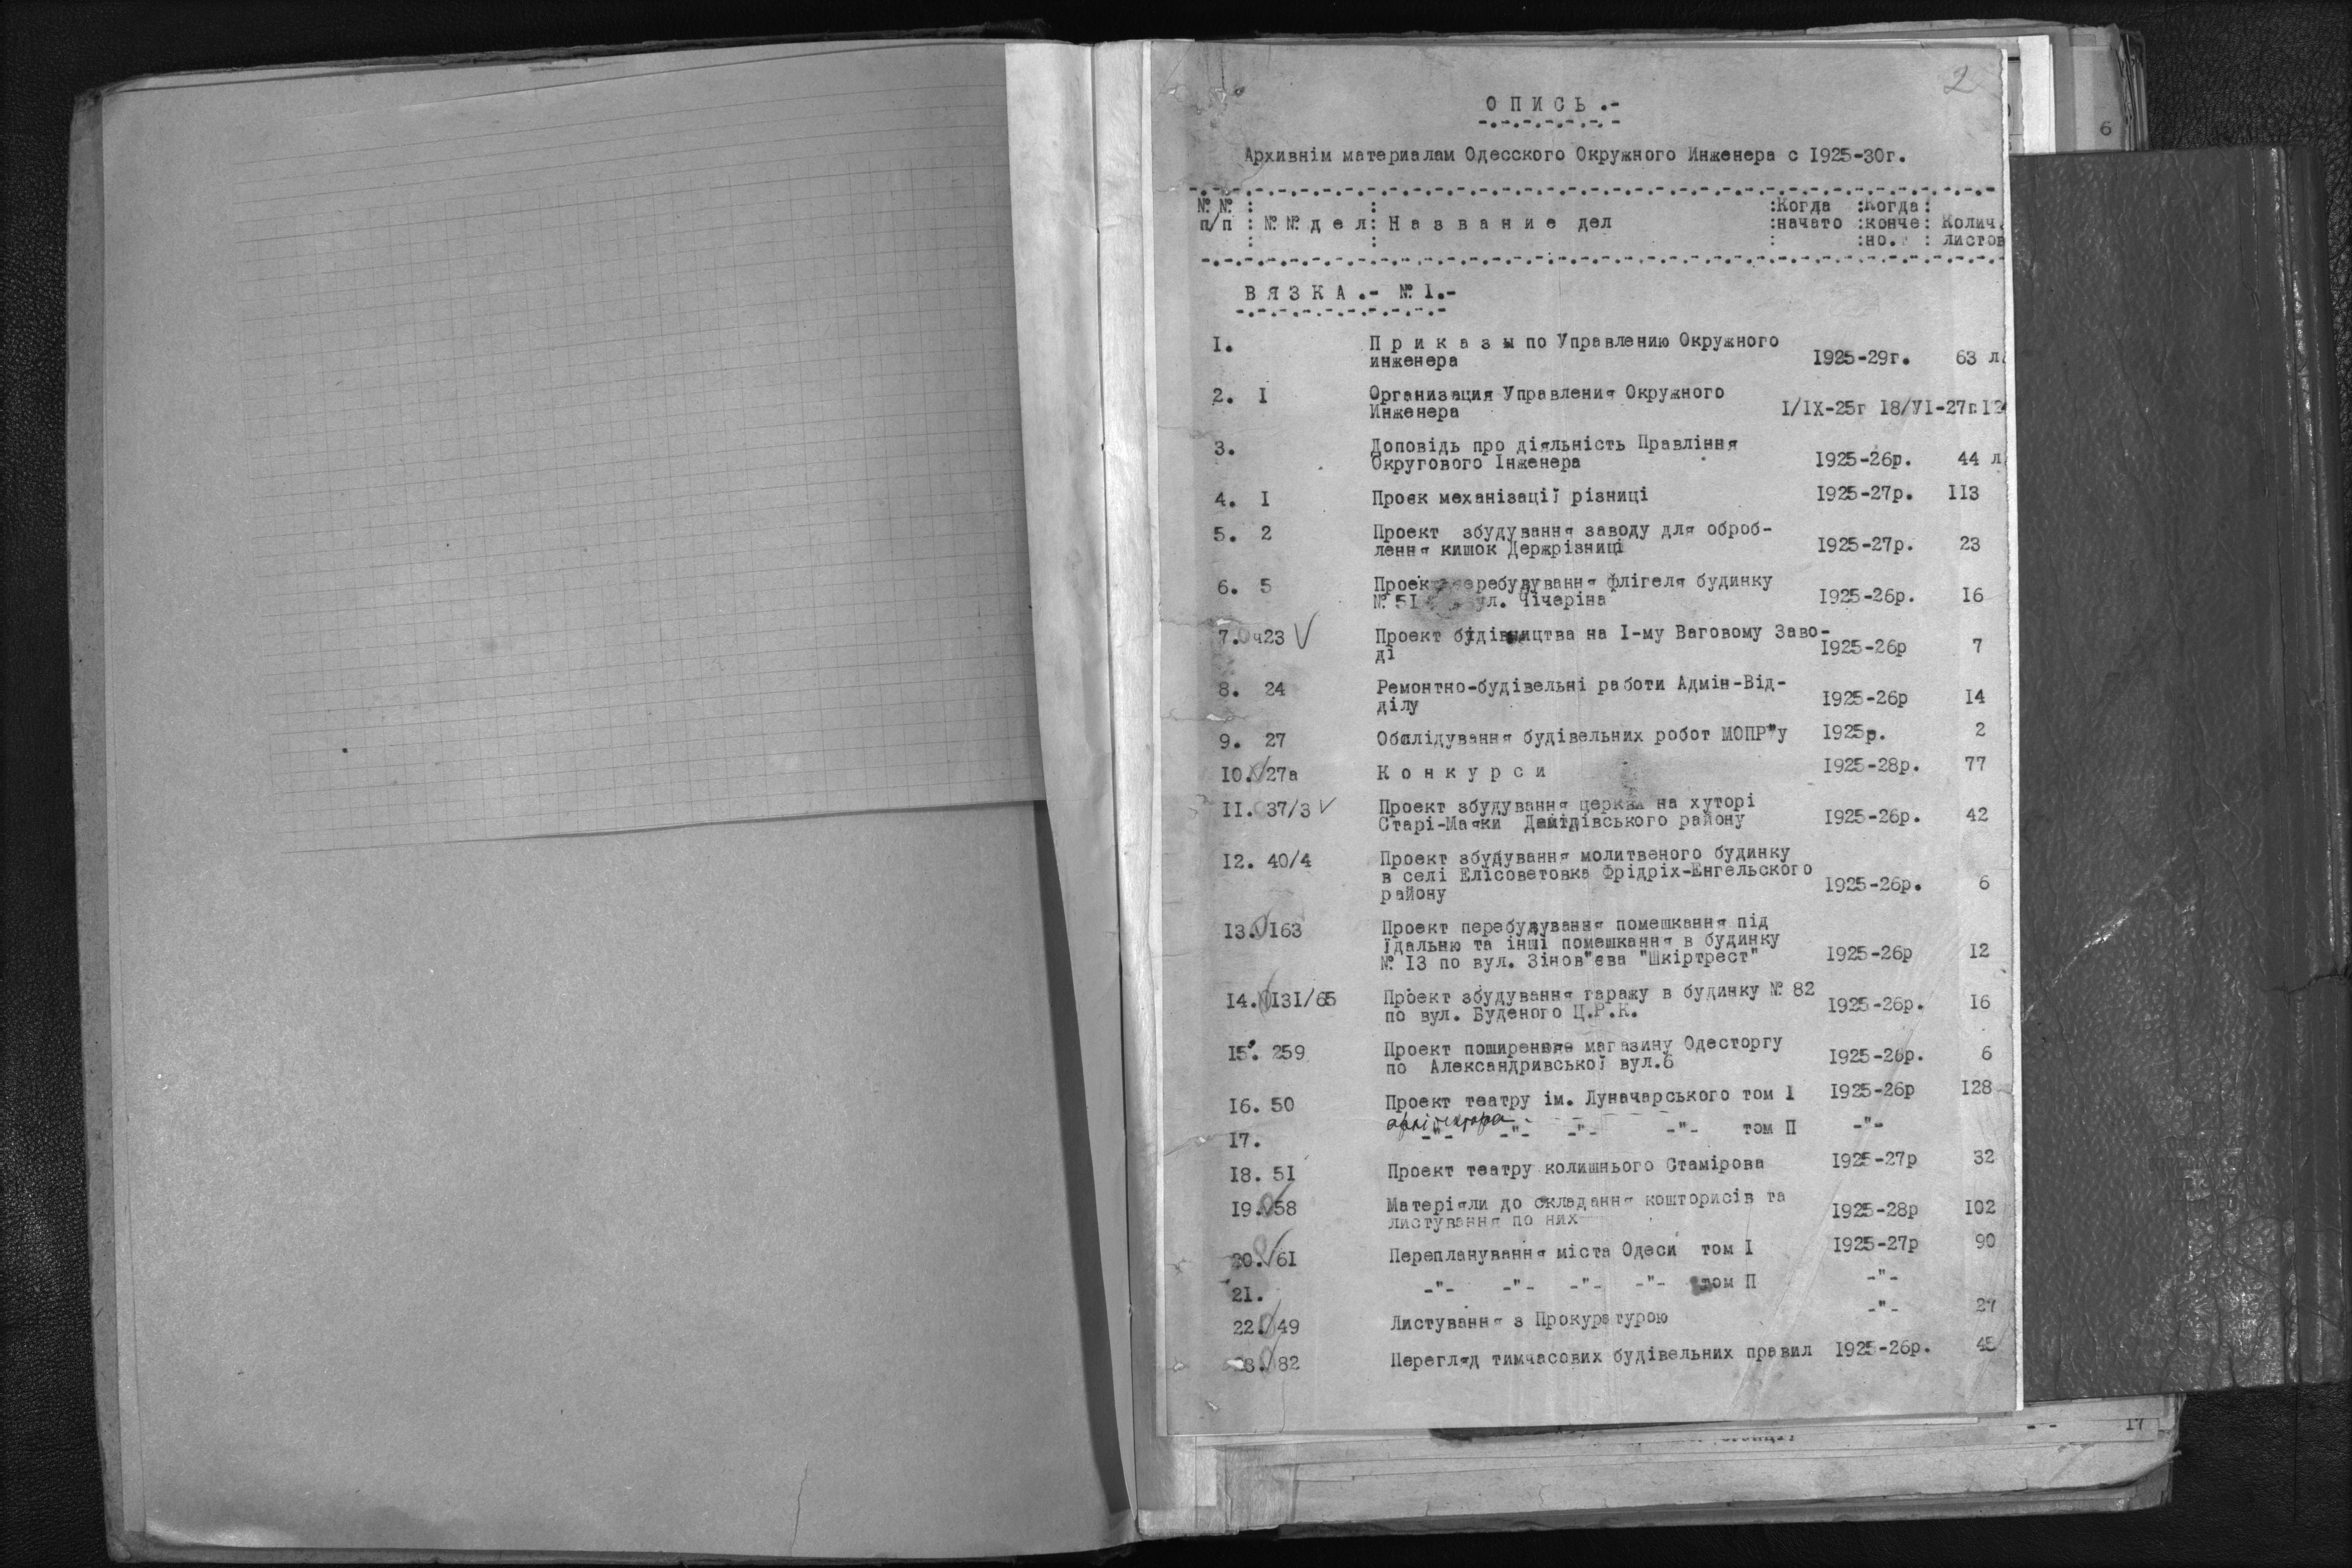 2
О П И С Ь .-
Архивнім материалам Одесского Окружного Инженера с 1925-30г.
№ № : : :Когда :Когда:
п/п : № № д е л: Н а з в а н и е дел :начато :конче: Колич.
: : : :но. : листов
В Я З К А .- № 1.-
1. П р и к а з ы по Управлению Окружного
инженера 1925-29г. 63 л
2. 1 Организация Управления Окружного
Инженера 1/IX-25г 18/VI-27г
3. Доповідь про діяльність Правління
Округового Інженера 1925-26р. 44 л
4. 1 Проек механізації різниці 1925-27р. 113
5. 2 Проект збудування заводу для оброб-
лення кишок Держрізниці 1925-27р. 23
6. 5 Проект перебудування флігеля будинку
№ 51 вул. Чічеріна 1925-26р. 16
7. ч23 V Проект бідівництва на 1-му Ваговому Заво-
ді 1925-26р 7
8. 24 Ремонтно-будівельні работи Адмін-Від-
ділу 1925-26р 14
9. 27 Обслідування будівельних робот МОПР"у 1925р. 2
10. 27а К о н к у р с и 1925-28р. 77
11. 37/3 V Проект збудування церкви на хуторі
Старі-Маяки Демідівського району 1925-26р. 42
12. 40/4 Проект збудування молитвеного будинку
в селі Елісоветовка Фрідріх-Енгельского
району 1925-26р. 6
13. 163 Проект перебудування помешкання під
їдальню та інші помешкання в будинку
№ 13 по вул. Зінов"ева "Шкіртрест" 1925-26р 12
14. 131/65 Проект збудування гаражу в будинку № 82
по вул. Буденого Ц.Р.К. 1925-26р. 16
15. 259 Проект поширення магазину Одесторгу
по Александривської вул.6 1925-26р. 6
16. 50 Проект театру ім. Луначарського том 1 1925-26р 128
архітектора
17. -"- -"- -"- -"- том П -"-
18. 51 Проект театру колишнього Стамірова 1925-27р 32
19. 58 Матеріяли до складання кошторисів та
листування по них 1925-28р 102
20. 61 Перепланування міста Одеси том 1 1925-27р 90
21. -"- -"- -"- -"- том П -"-
22. 49 Листування з Прокуратурою -"- 27
23. 82 Перегляд тимчасових будівельних правил 1925-26р. 45
6
17